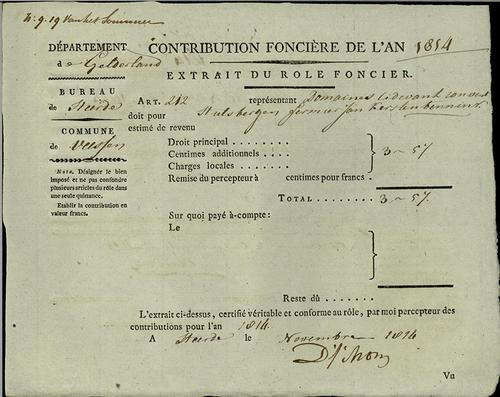 N. 9. 19 van het Sommier
DÉPARTEMENT
à Gelderland
BUREAU
de Heerde
COMMUNE
de Veessen
Nota. Désigner le bien
imposé et ne pas confondre
plusieurs articles du rôle dans
une seule quittance.
Etablir la contribution en
valeur francs.
CONTRIBUTION FONCIÈRE DE L'AN 1814
EXTRAIT DU ROLE FONCIER.
ART. 212 représentant Domaines ci devant
doit pour Hulsbergen fermier Jan
estimé de revenu
Droit principal . . . . . . . .
Centimes additionnels . . . .
Charges locales . . . . . . .
3 ~ 57
Remise du percepteur à centimes pour francs .
TOTAL . . . . . . . . 3 ~ 57
Sur quoi payé à-compte:
Le
Reste dû . . . . . . .
L'extrait ci-dessus, certifié véritable et conforme au rôle, par moi percepteur des
contributions pour l'an 1814
A Heerde le Novembre 1814
Vu